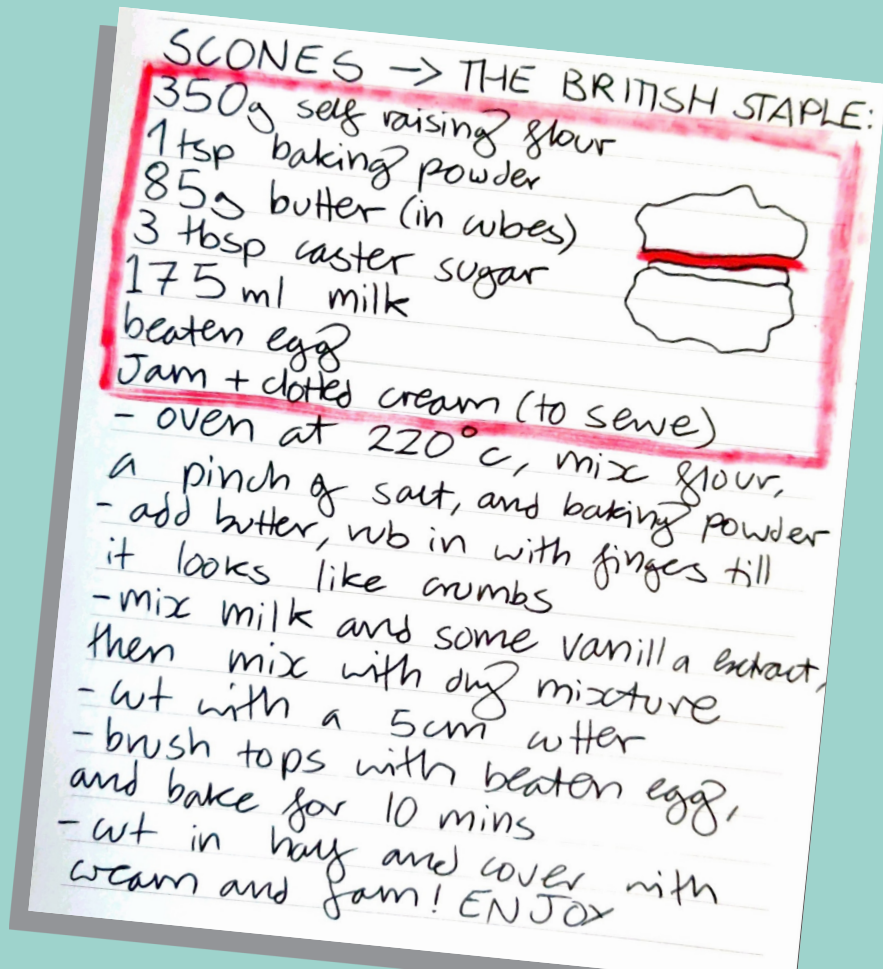 SCONES → THE BRITISH STAPLE:
350g self raising flour
1 tsp baking powder
85g butter (in cubes)
3 tbsp caster sugar
175 ml milk
beaten egg
Jam + clotted cream (to serve)
- oven at 220°c, mix flour,
a pinch of salt, and baking powder
- add butter, rub in with finges till
it looks like crumbs
- mix milk and some vanilla extract,
then mix with dry mixture
- cut with a 5cm cutter
- brush tops with beaten egg,
and bake for 10 mins
- cut in half and cover with
cream and jam! ENJOY